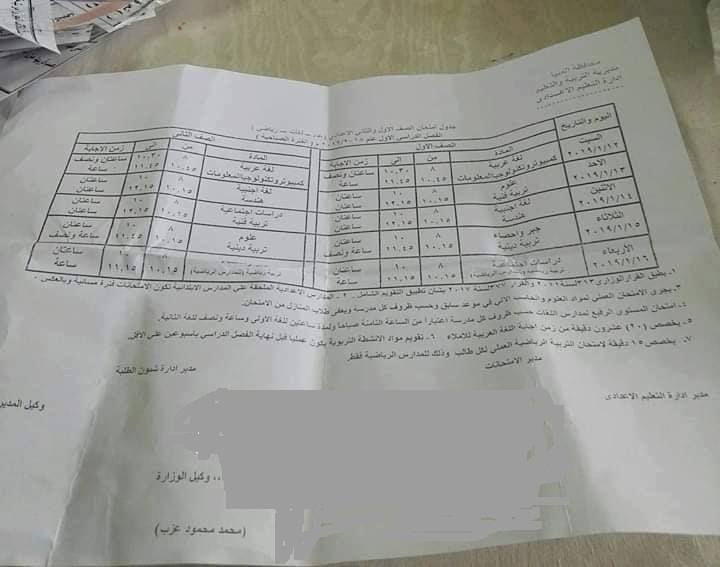 محافظة المنيا
مديرية التربية والتعليم
إدارة التعليم الاعدادى
جدول امتحان الصف الاول والثاني الاعدادي
الفصل الدراسي الاول عام ٢٠١٩/٢٠١٨ م ( الفترة الصباحية )
اليوم والتاريخ الصف الاول الصف الثاني
المادة من الى زمن الاجابة المادة من الى زمن الاجابة
السبت ٢٠١٩/١/١٢ لغة عربية ٨ ١٠.٣٠ ساعتان ونصف لغة عربية ٨ ١٠.٣٠ ساعتان ونصف
كمبيوتر وتكنولوجيا المعلومات ١٠.٤٥ ١١.٤٥ ساعة كمبيوتر وتكنولوجيا المعلومات ١٠.٤٥ ١١.٤٥ ساعة
الاحد ٢٠١٩/١/١٣ علوم ٨ ١٠ ساعتان لغة اجنبية ٨ ١٠ ساعتان
تربية فنية ١٠.١٥ ١٢.١٥ ساعتان هندسة ١٠.١٥ ١٢.١٥ ساعتان
الاثنين ٢٠١٩/١/١٤ لغة اجنبية ٨ ١٠ ساعتان دراسات اجتماعية ٨ ١٠ ساعتان
هندسة ١٠.١٥ ١٢.١٥ ساعتان تربية فنية ١٠.١٥ ١٢.١٥ ساعتان
الثلاثاء ٢٠١٩/١/١٥ جبر واحصاء ٨ ١٠ ساعتان ٨ ١٠ ساعتان
تربية دينية ١٠.١٥ ١١.٤٥ ساعة ونصف ١٠.١٥ ١١.٤٥ ساعة ونصف
الأربعاء ٢٠١٩/١/١٦ دراسات اجتماعية ٨ ١٠ ساعتان علوم ٨ ١٠ ساعتان
١٠.١٥ ١١.١٥ ساعة تربية دينية ١٠.١٥ ١١.١٥ ساعة
١. يطبق القرار الوزارى ٣١٣لسنة٢٠١١ والقرار ٣٧٧لسنة ٢٠١٧ بشان تطبيق التقويم الشامل. ٢. المدارس الاعدادية الملحقة على المدارس الابتدائية تكون الامتحانات فترة مسائية وبالعكس.
٣. يجرى الامتحان العملي لمواد العلوم والحاسب الالى في موعد سابق وحسب ظروف كل مدرسه ويعفى طلاب المنازل من الامتحان.
٤. امتحان المستوى الرفيع لمدارس اللغات حسب ظروف كل مدرسه اعتباراً من الساعة الثامنة صباحا ولمدة ساعتين للغة الاولى وساعة ونصف للغة الثانية.
٥. يخصص (٢٠) عشرون دقيقة من زمن اجابة اللغة العربية للاملاء ٦. تقويم مواد الانشطة التربوية يكون عمليا قبل نهاية الفصل الدراسي باسبوعين على الأقل.
٧. يخصص ١٥ دقيقة لامتحان التربية الرياضية العملي لكل طالب وذلك للمدارس الرياضية فقط
مدير ادارة التعليم الاعدادى مدير الامتحانات مدير ادارة شئون الطلبة وكيل المدير
،، وكيل الوزارة
(محمد محمود عزب)